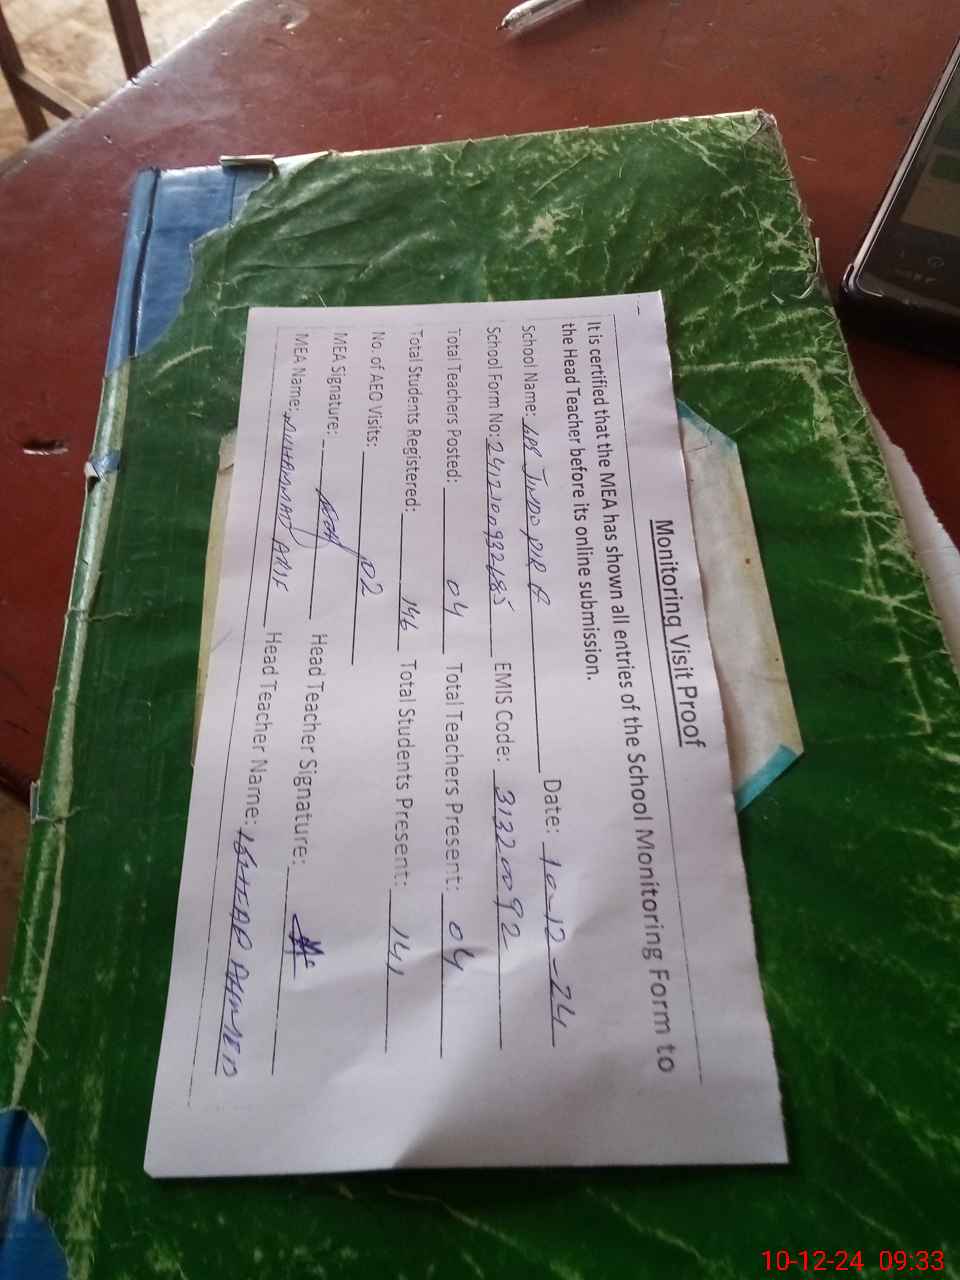 Monitoring Visit Proof
It is certified that the MEA has shown all entries of the School Monitoring Form to
the Head Teacher before its online submission.
School Name: JINDO PIR Date: 10-12-24
School Form No: EMIS Code: 31320092
Total Teachers Posted: 04 Total Teachers Present: 04
Total Students Registered: 146 Total Students Present: 141
No. of AEO Visits: 02
MEA Signature: Head Teacher Signature:
MEA Name: MUHAMMAD ARIF Head Teacher Name: AHMED
10-12-24 09:33